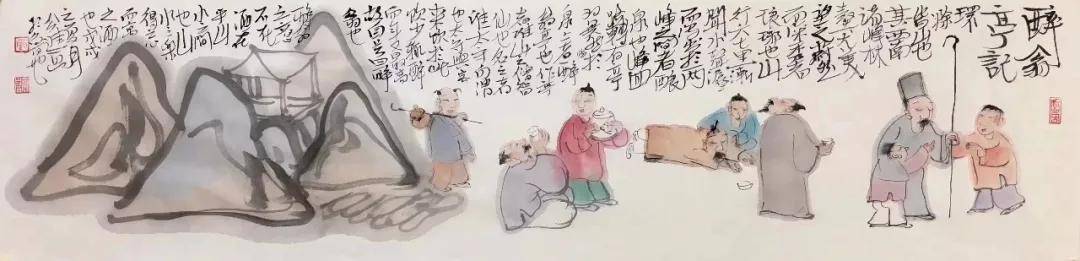 醉翁
亭記
環
滁
皆山也
其西南
諸峰林
壑尤美
望之蔚然
而深秀者
琅琊也山
行六七里漸
聞水聲潺潺
而瀉出於兩
峰之間者釀
泉也峰回
路轉有亭
翼然臨於
泉上者醉
翁亭也作亭
者誰山之僧智
仙也名之者
誰太守自謂
也太守與客
來飲於此
飲少輒醉
而年又最高
故自號曰醉
翁也
醉翁
之意
不在
酒在
乎山
水之間
也山
水之樂
得之心
而寓
之酒
也戊戌